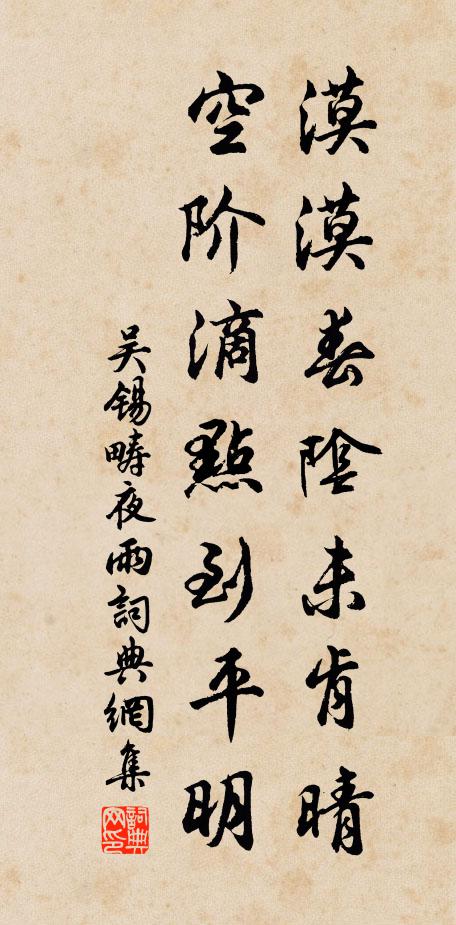 漠漠春陰未肯晴
空阶滴點到平明
吴锡疇夜雨詞典網集
詞典网印